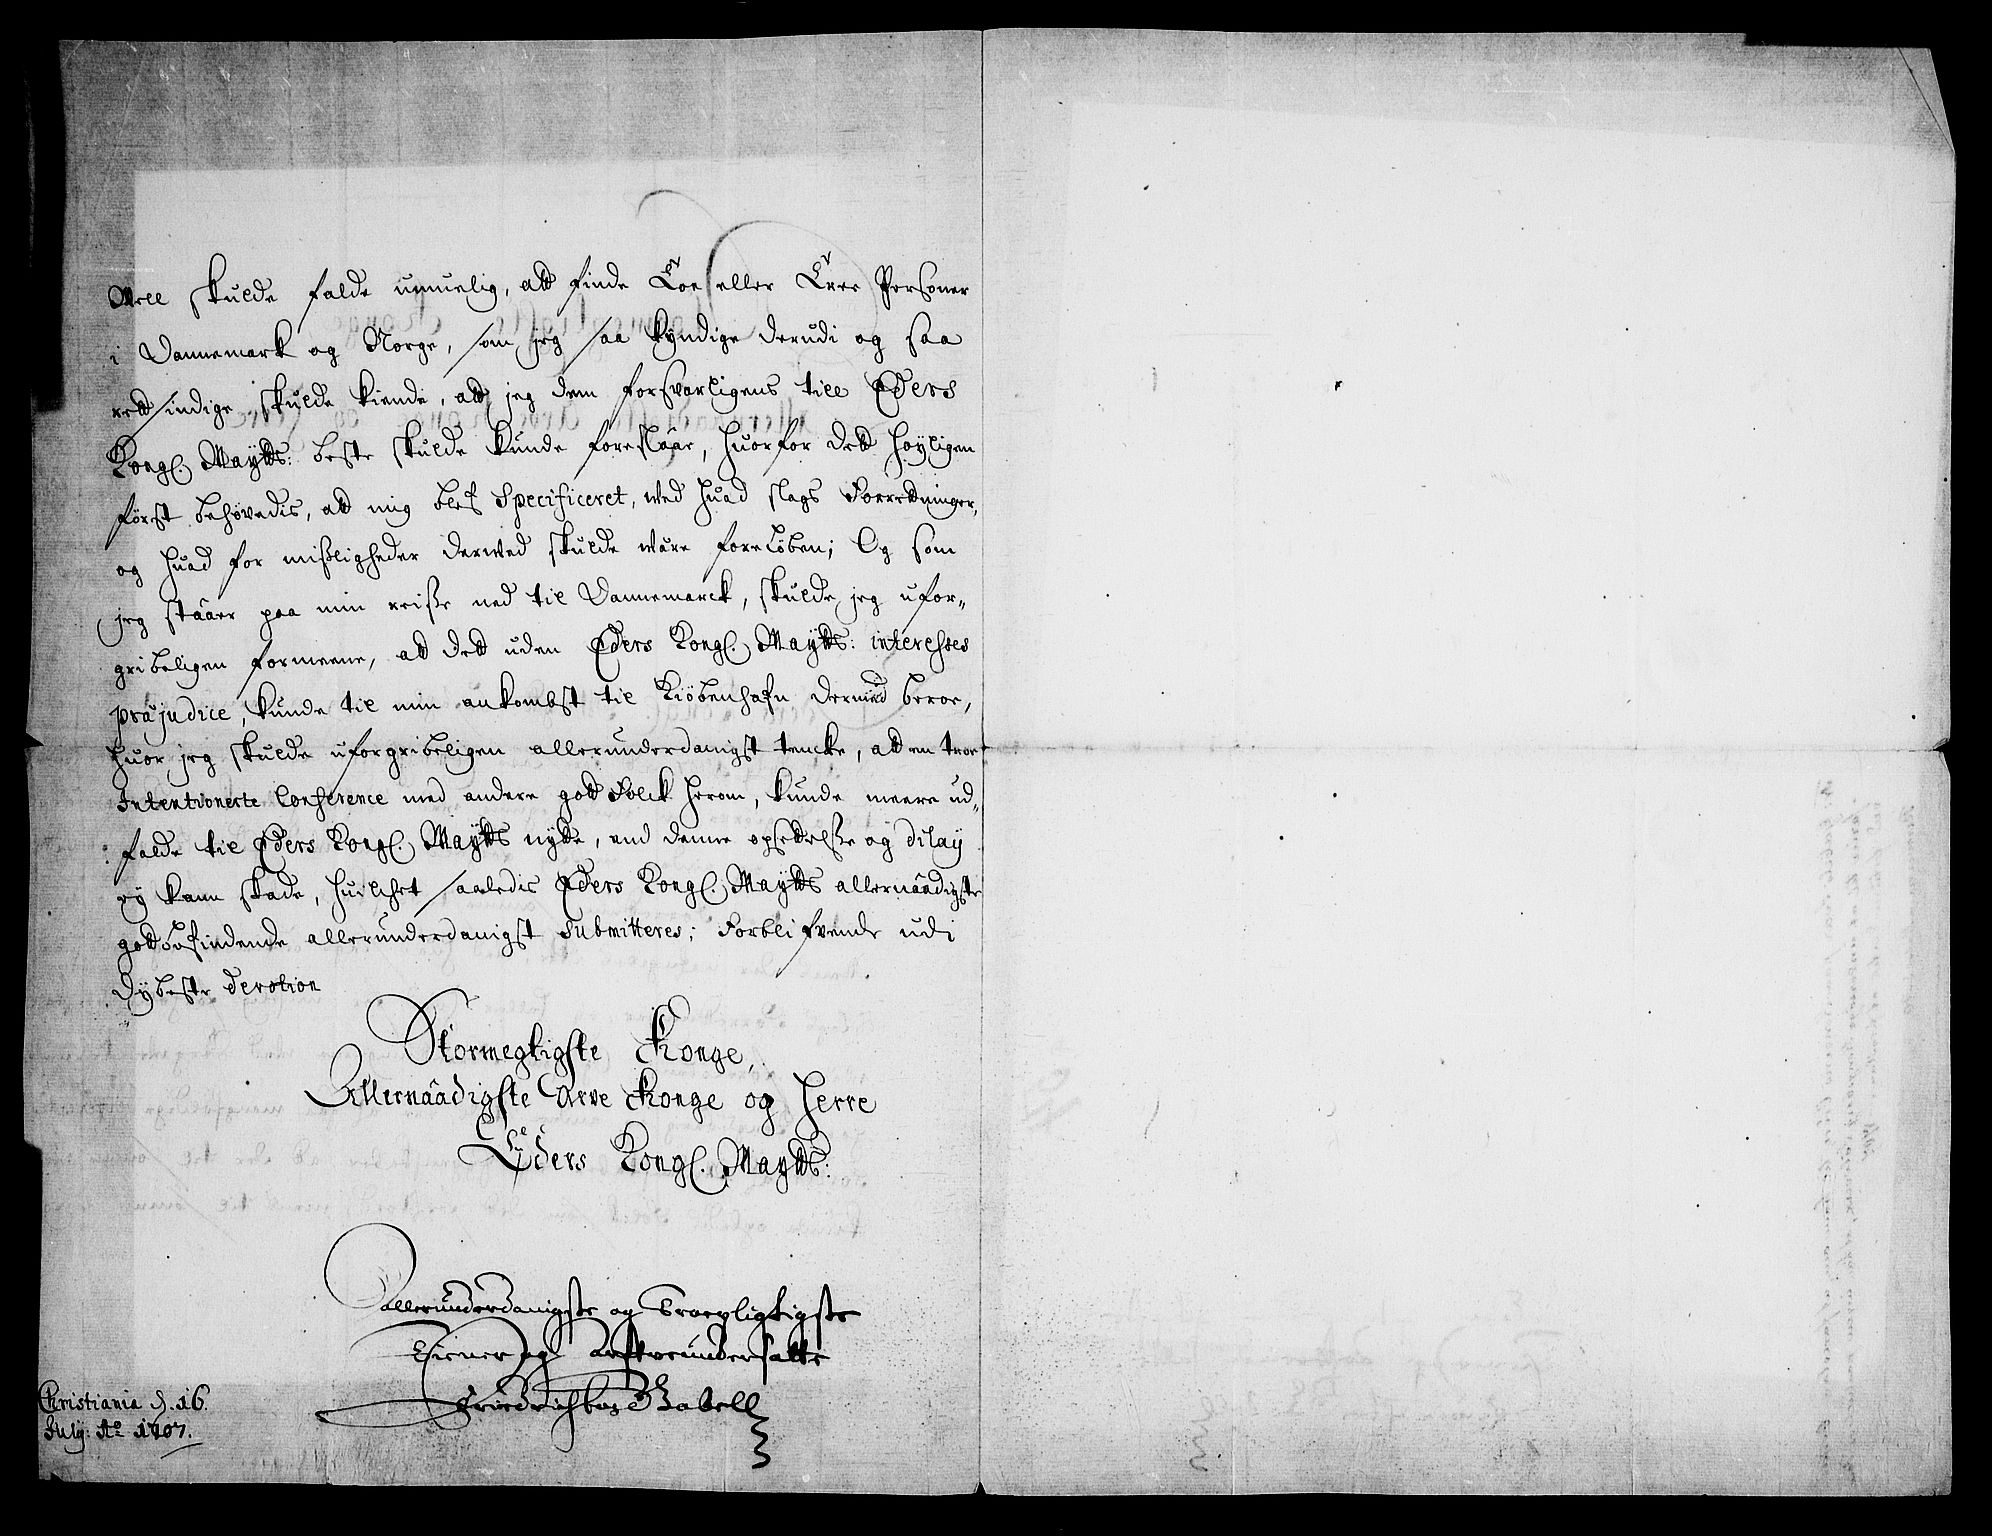 skulde falde umuelig, att finde Toe eller Tree Personer
i Dannemark og Norge, som jeg saa kyndige derudi og saa
rettsindige skulde kiende, att jeg dem forsvarligens till Eders
Kongl. Maytts: beste skulde kunde foreslaae, huorfor dett høyligen
først behøvedis, att mig blef Specificeret, wed huad slags Forretninger,
og huad for misligheder derwed skulde wäre foreløben; Og som
jeg stääer paa min reisse ned til Dannemarck, skulde jeg ufor-
gribeligen formeene, att dett uden Eders Kongl. Maytts: interesses
præjudice, kunde til min ankombst til Kiöbenhafn dermed beroe,
huor jeg skulde uforgribeligen allerunderdanigst tencke, att en troe
Intentionerte Conference med andere gott Folck herom, kunde meere ud-
falde til Eders Kongl. Maytts nytte, end denne opsettelse og dilay
ey kann skade, huilchet saaledis Eders Kongl. Maytts allernäädigste
gottbefindende allerunderdanigst Submitteres; Forblifvende udi
dybeste devotion
Stormegtigste Konge,
Allernäädigste Arve Konge og Herre
Eders Kongl. Maytts:
allerunderdanigste og Troepligtigste
Tiener og Arfveundersatte
Friedrich Gabell
Christiania d. 16.
July: Ao 1707.